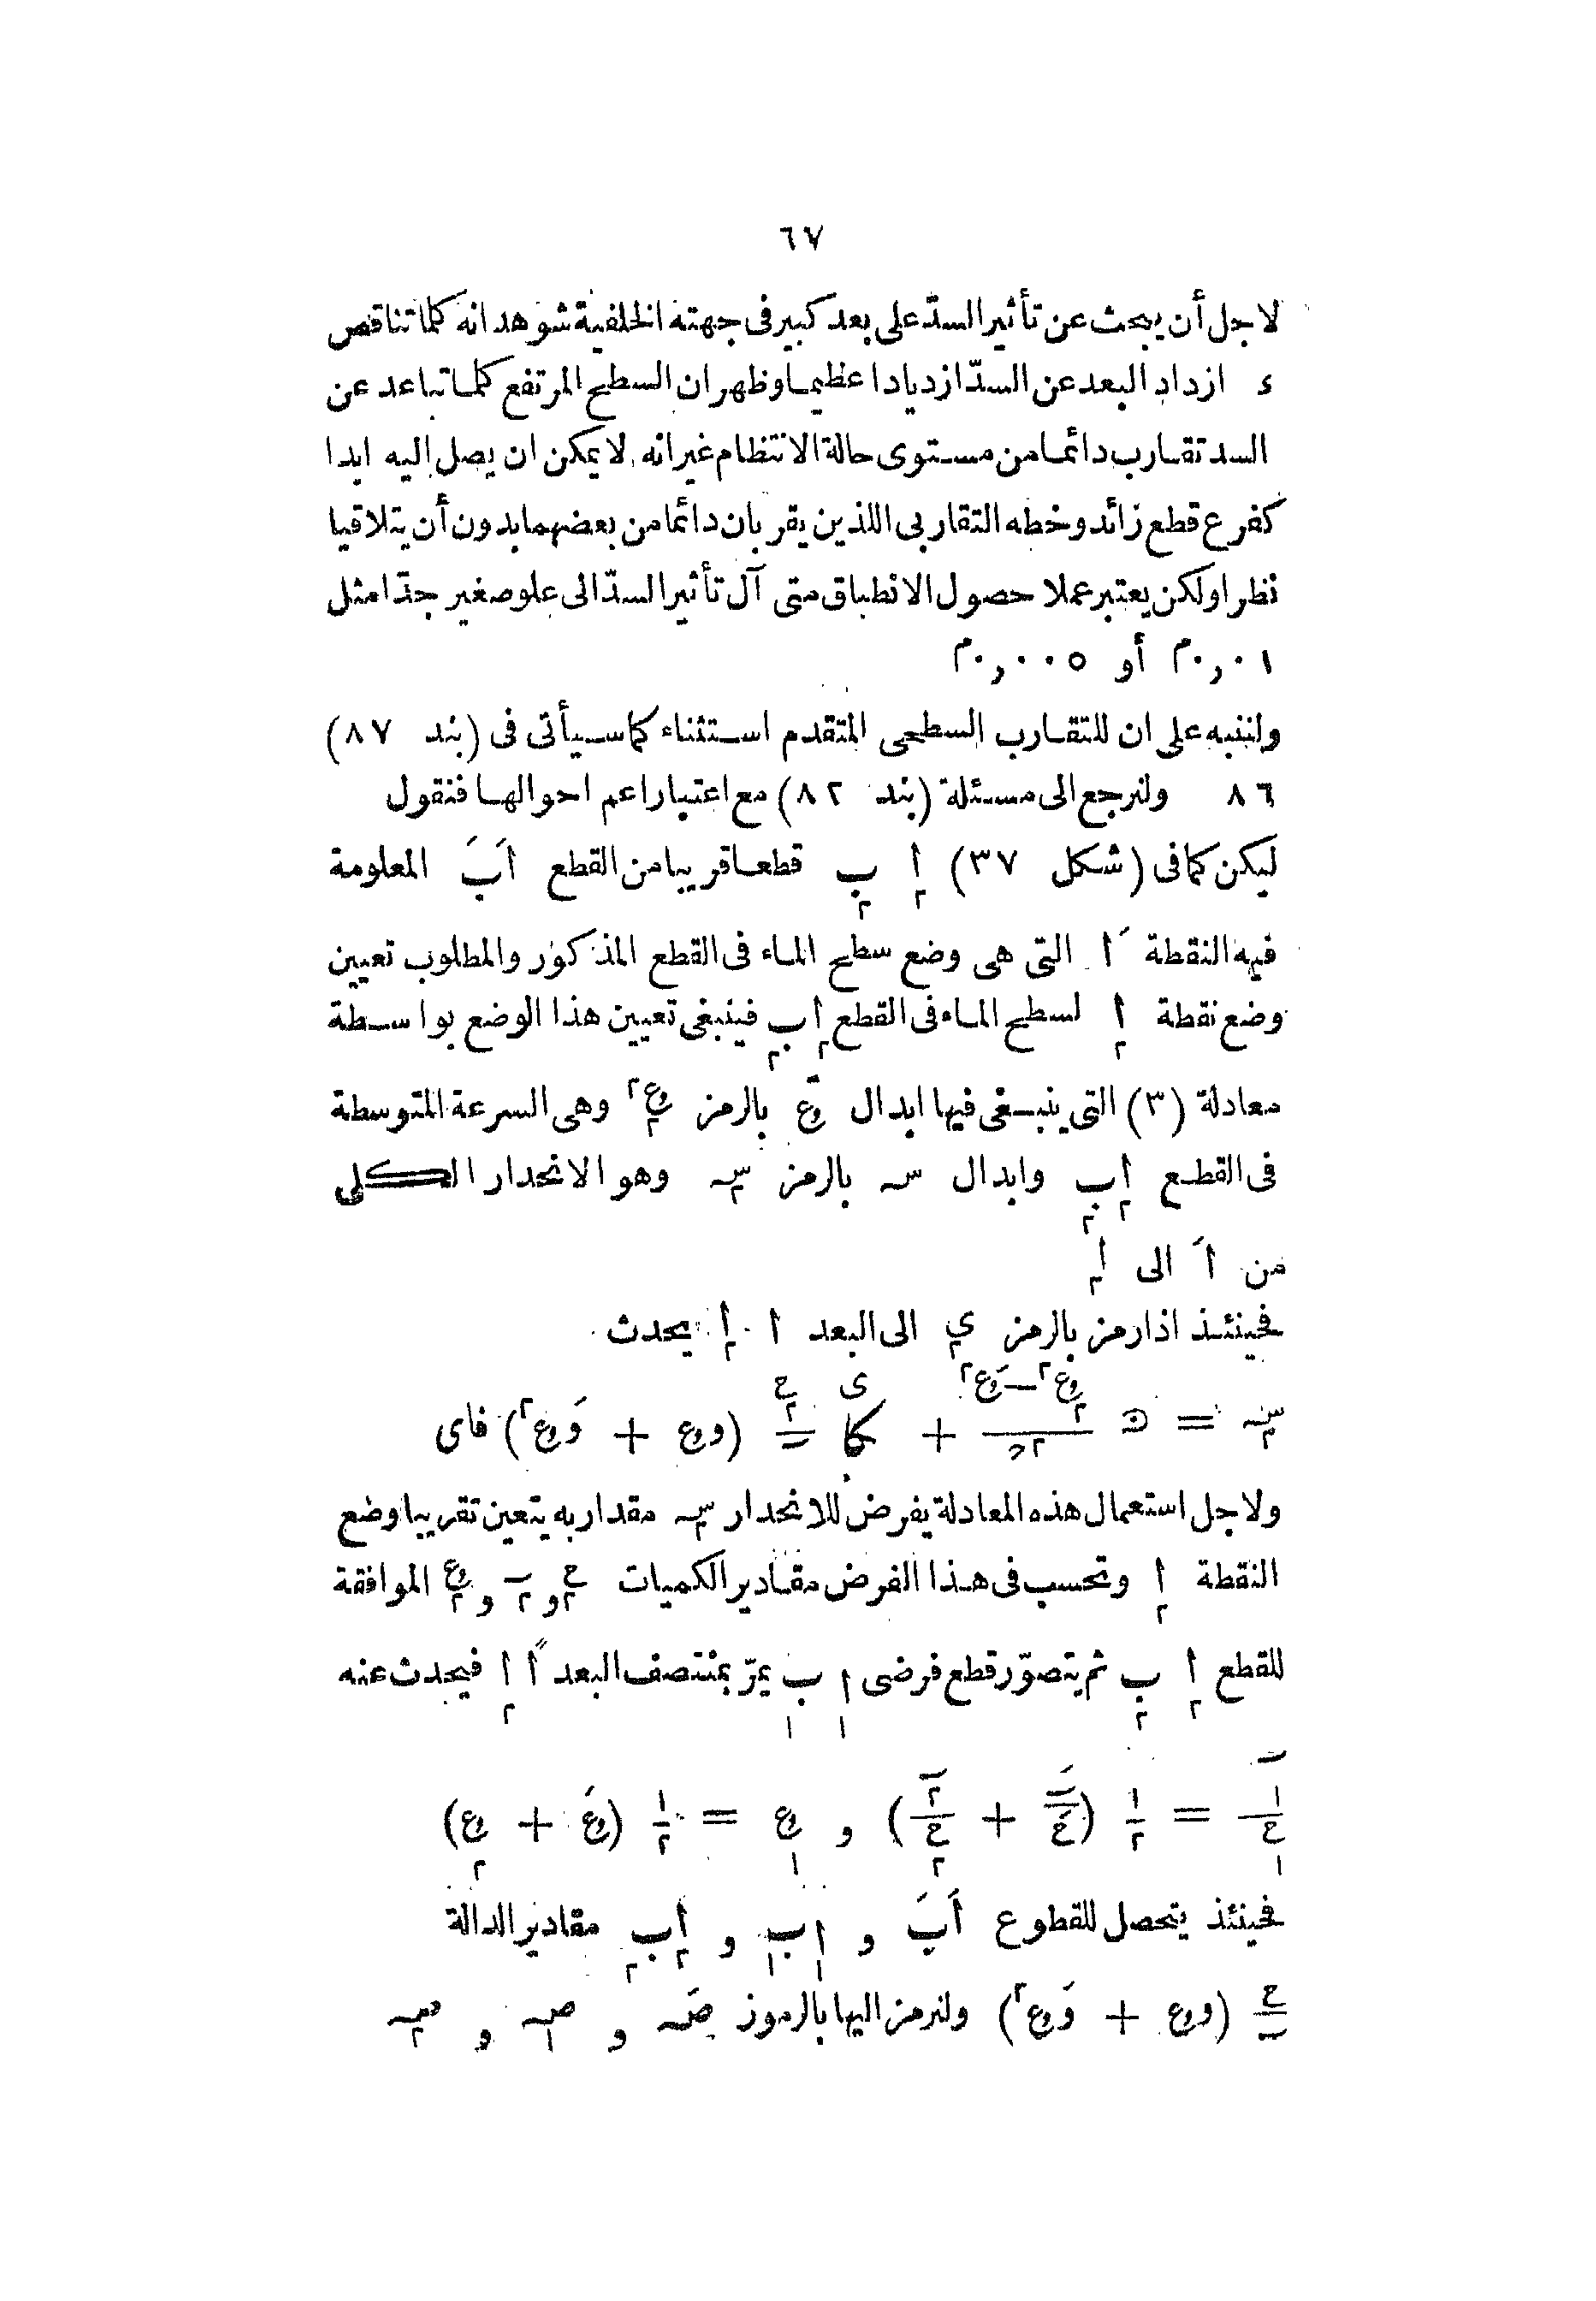 ٦٧
لاجل أن يبحث عن تأثير السدّ على بعد كبير فى جهته الخلفية شوهد انه كلما تناقص
ء ازداد البعد عن السدّ ازديادا عظيما وظهر ان السطح المرتفع كلما تباعد عن
السد تقارب دائما من مستوى حالة الانتظام غير انه لا يمكن ان يصل اليه ابدا
كفرع قطع زائد وخطه التقاربى اللذين يقربان دائما من بعضهما بدون أن يتلاقيا
نظرا ولكن يعتبر عملا حصول الانطباق متى آل تأثير السدّ الى علو صغير جدّا مثل
٠,٠١م أو ٠,٠٠٥م
ولننبه على ان للتقارب السطحى المتقدم استثناء كما سيأتى فى (بند ٨٧)
٨٦ ولنرجع الى مسئلة (بند ٨٢) مع اعتبار اعم احوالها فنقول
ليكن كما فى (شكل ٣٧) ا٢ ب٢ قطعا قريبا من القطع اَبَ المعلومة
فيه النقطة اَ التى هى وضع سطح الماء فى القطع المذكور والمطلوب تعيين
وضع نقطة ا٢ لسطح الماء فى القطع ا٢ب٢ فينبغى تعيين هذا الوضع بواسطة
معادلة (٣) التى ينبغى فيها ابدال وع بالرمز وع٢² وهى السرعة المتوسطة
فى القطع ا٢ب٢ وابدال سہ بالرمز سہ٢ وهو الانحدار الكلى
من اَ الى ا٢
فحينئذ اذا رمز بالرمز ى٢ الى البعد ا ا٢ يحدث
سہ٢ = (وع٢² − وَع²)/٢ء + ح/ں (وع + وَع²) فاى
ولاجل استعمال هذه المعادلة يفرض للانحدار سہ٢ مقدار به يتعين تقريبا وضع
النقطة ا٢ وتحسب فى هذا الفرض مقادير الكميات ح٢ و ں٢ و وع٢ الموافقة
للقطع ا٢ ب٢ ثم يتصوّر قطع فرضى ا١ ب١ يمرّ بمنتصف البعد اً ا٢ فيحدث عنه
ں١/ح١ = ١/٢ (ںَ/حَ + ں٢/ح٢) و وع١ = ١/٢ (وعَ + وع٢)
فحينئذ يتحصل للقطوع اَبَ و ا١ب١ و ا٢ب٢ مقادير الدالة
ح/ں (وع + وَع²) ولنرمز اليها بالرموز صَہ و صہ١ و صہ٢